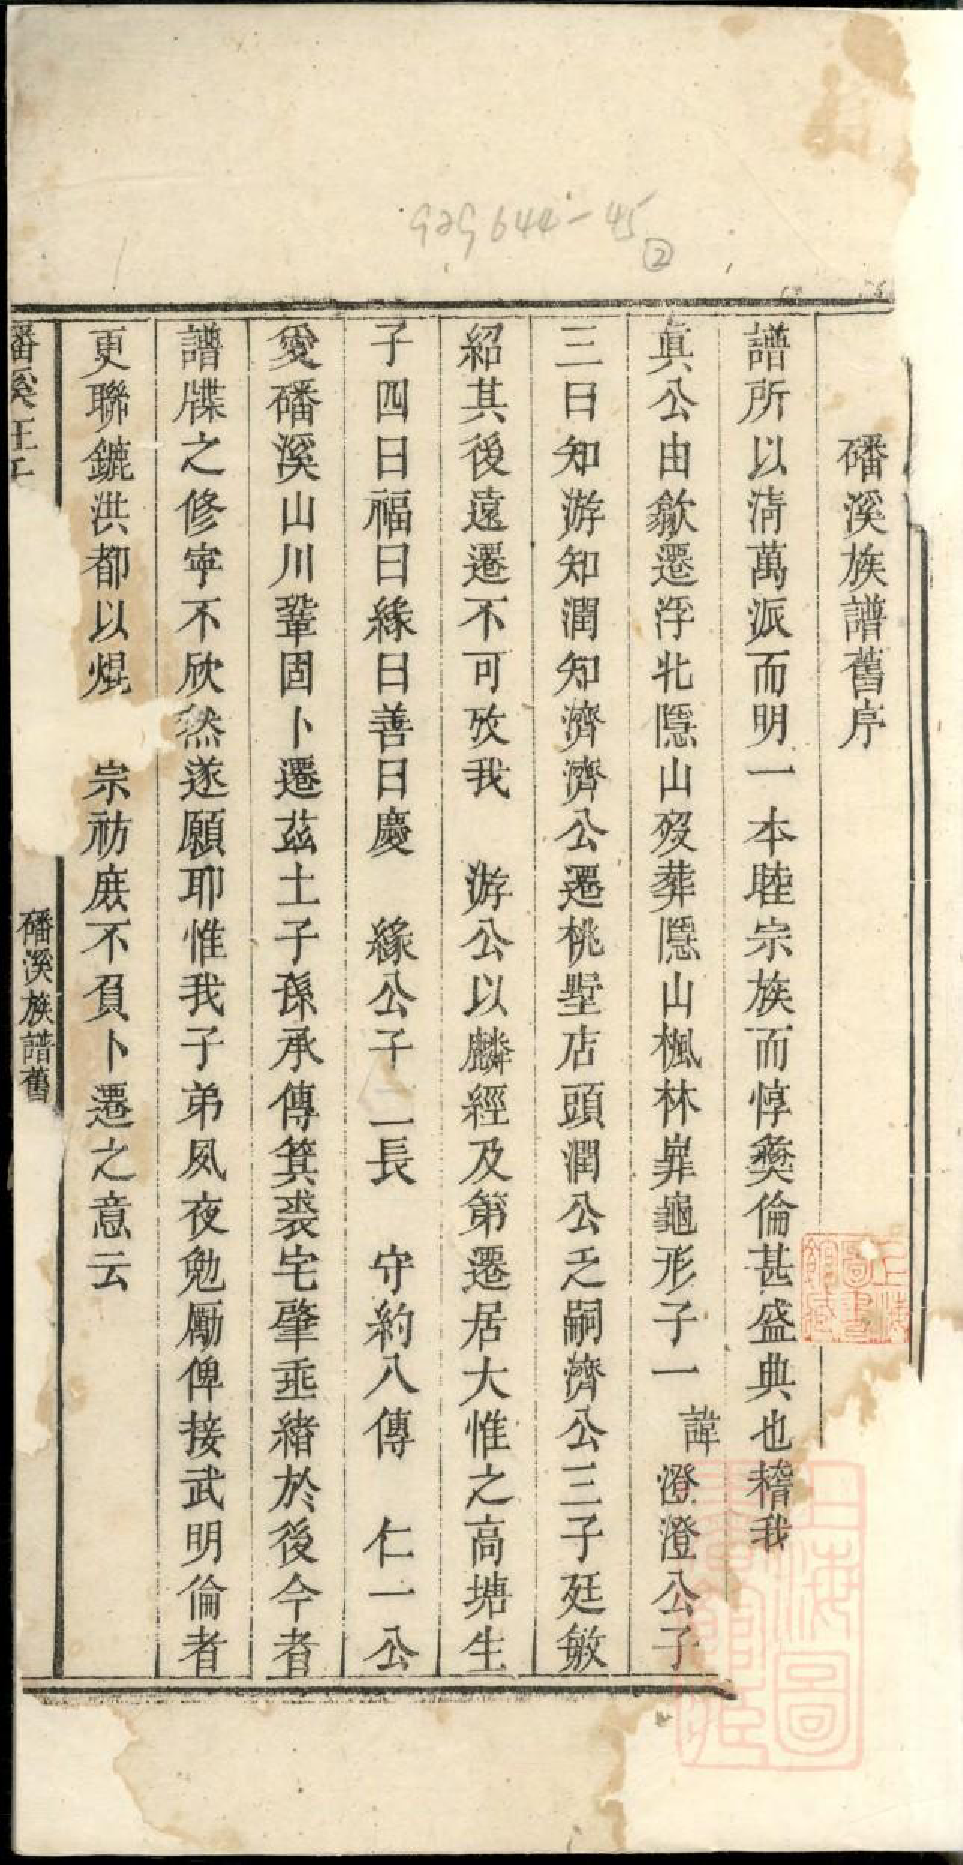 929644-45
②
磻溪族譜舊序
譜所以清萬派而明一本睦宗族而惇彝倫甚盛典也稽我
眞公由歙遷浮北隱山歿葬隱山楓林峯龜形子一 諱澄澄公子
三曰知游知潤知濟濟公遷桃墅店頭潤公乏嗣濟公三子廷敏
紹其後遠遷不可攷我 游公以麟經及第遷居大惟之高塘生
子四曰福曰緣曰善曰慶 緣公子二長 守約八傳 仁一公
愛磻溪山川鞏固卜遷茲土子孫承傳箕裘宅肇垂緒於後今者
譜牒之修寧不欣然遂願耶惟我子弟夙夜勉勵俾接武明倫者
更聯鑣洪都以焜 宗祊庶不負卜遷之意云
磻溪汪
磻溪族譜舊
上海圖書館藏
上海圖書館藏